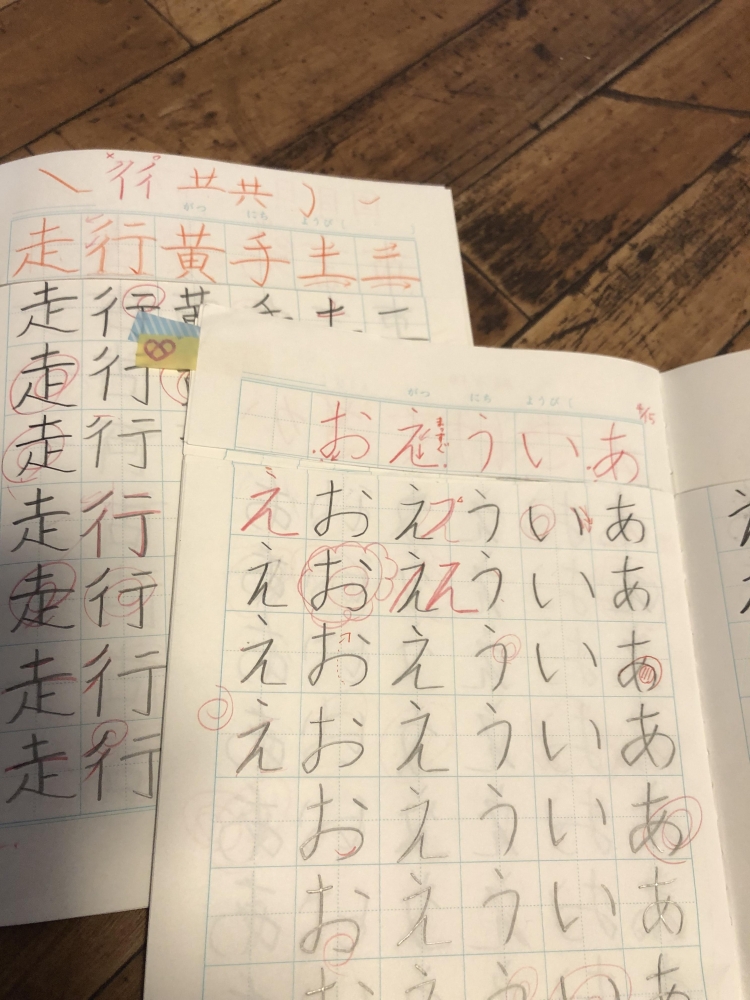 がつ にち ようび
手
黄
行行行行行行行行
走走走走走走走走
がつ にち ようび
4/15
あああああああ
いいいいいいい
ううううううう
まっすぐ
えええええええ
おおおおおおお
ええええ